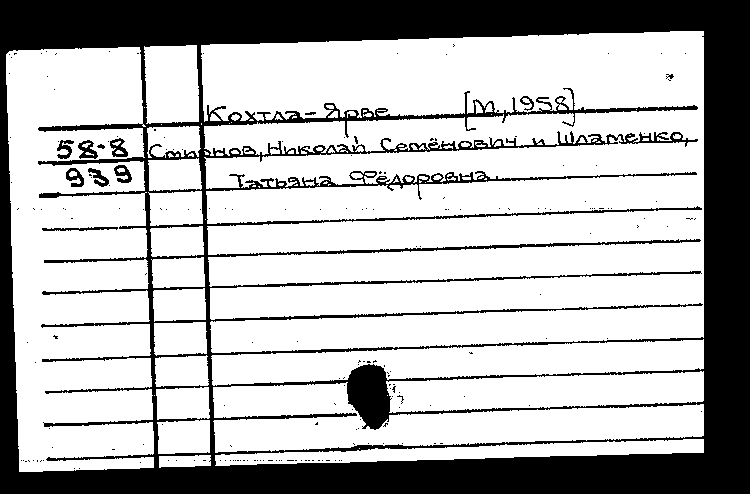 Кохтла-Ярве [М.,1958].
58-8 Смирнов, Николай Семёнович и Шламенко,
939 Татьяна Фёдоровна.